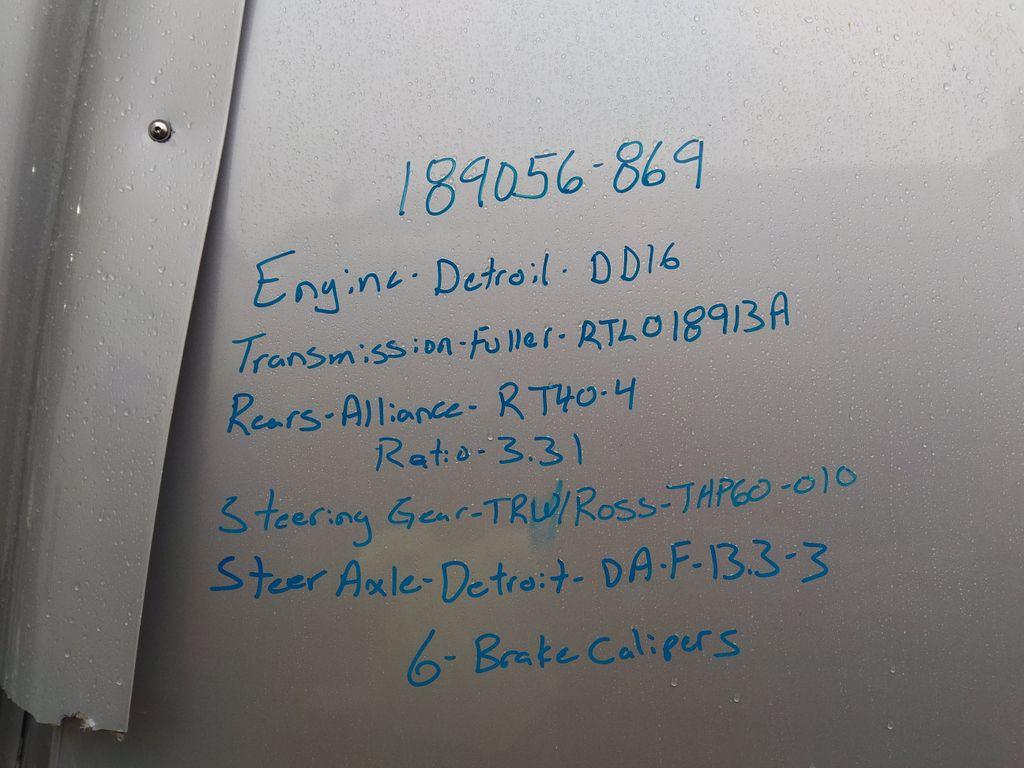 189056-869
Engine-Detroit-DD16
Transmission-Fuller-RTLO18913A
Rears-Alliance-RT40-4
Ratio-3.31
Steering Gear-TRW/Ross-THP60-010
Steer Axle-Detroit-DA-F-13.3-3
6-Brake Calipers